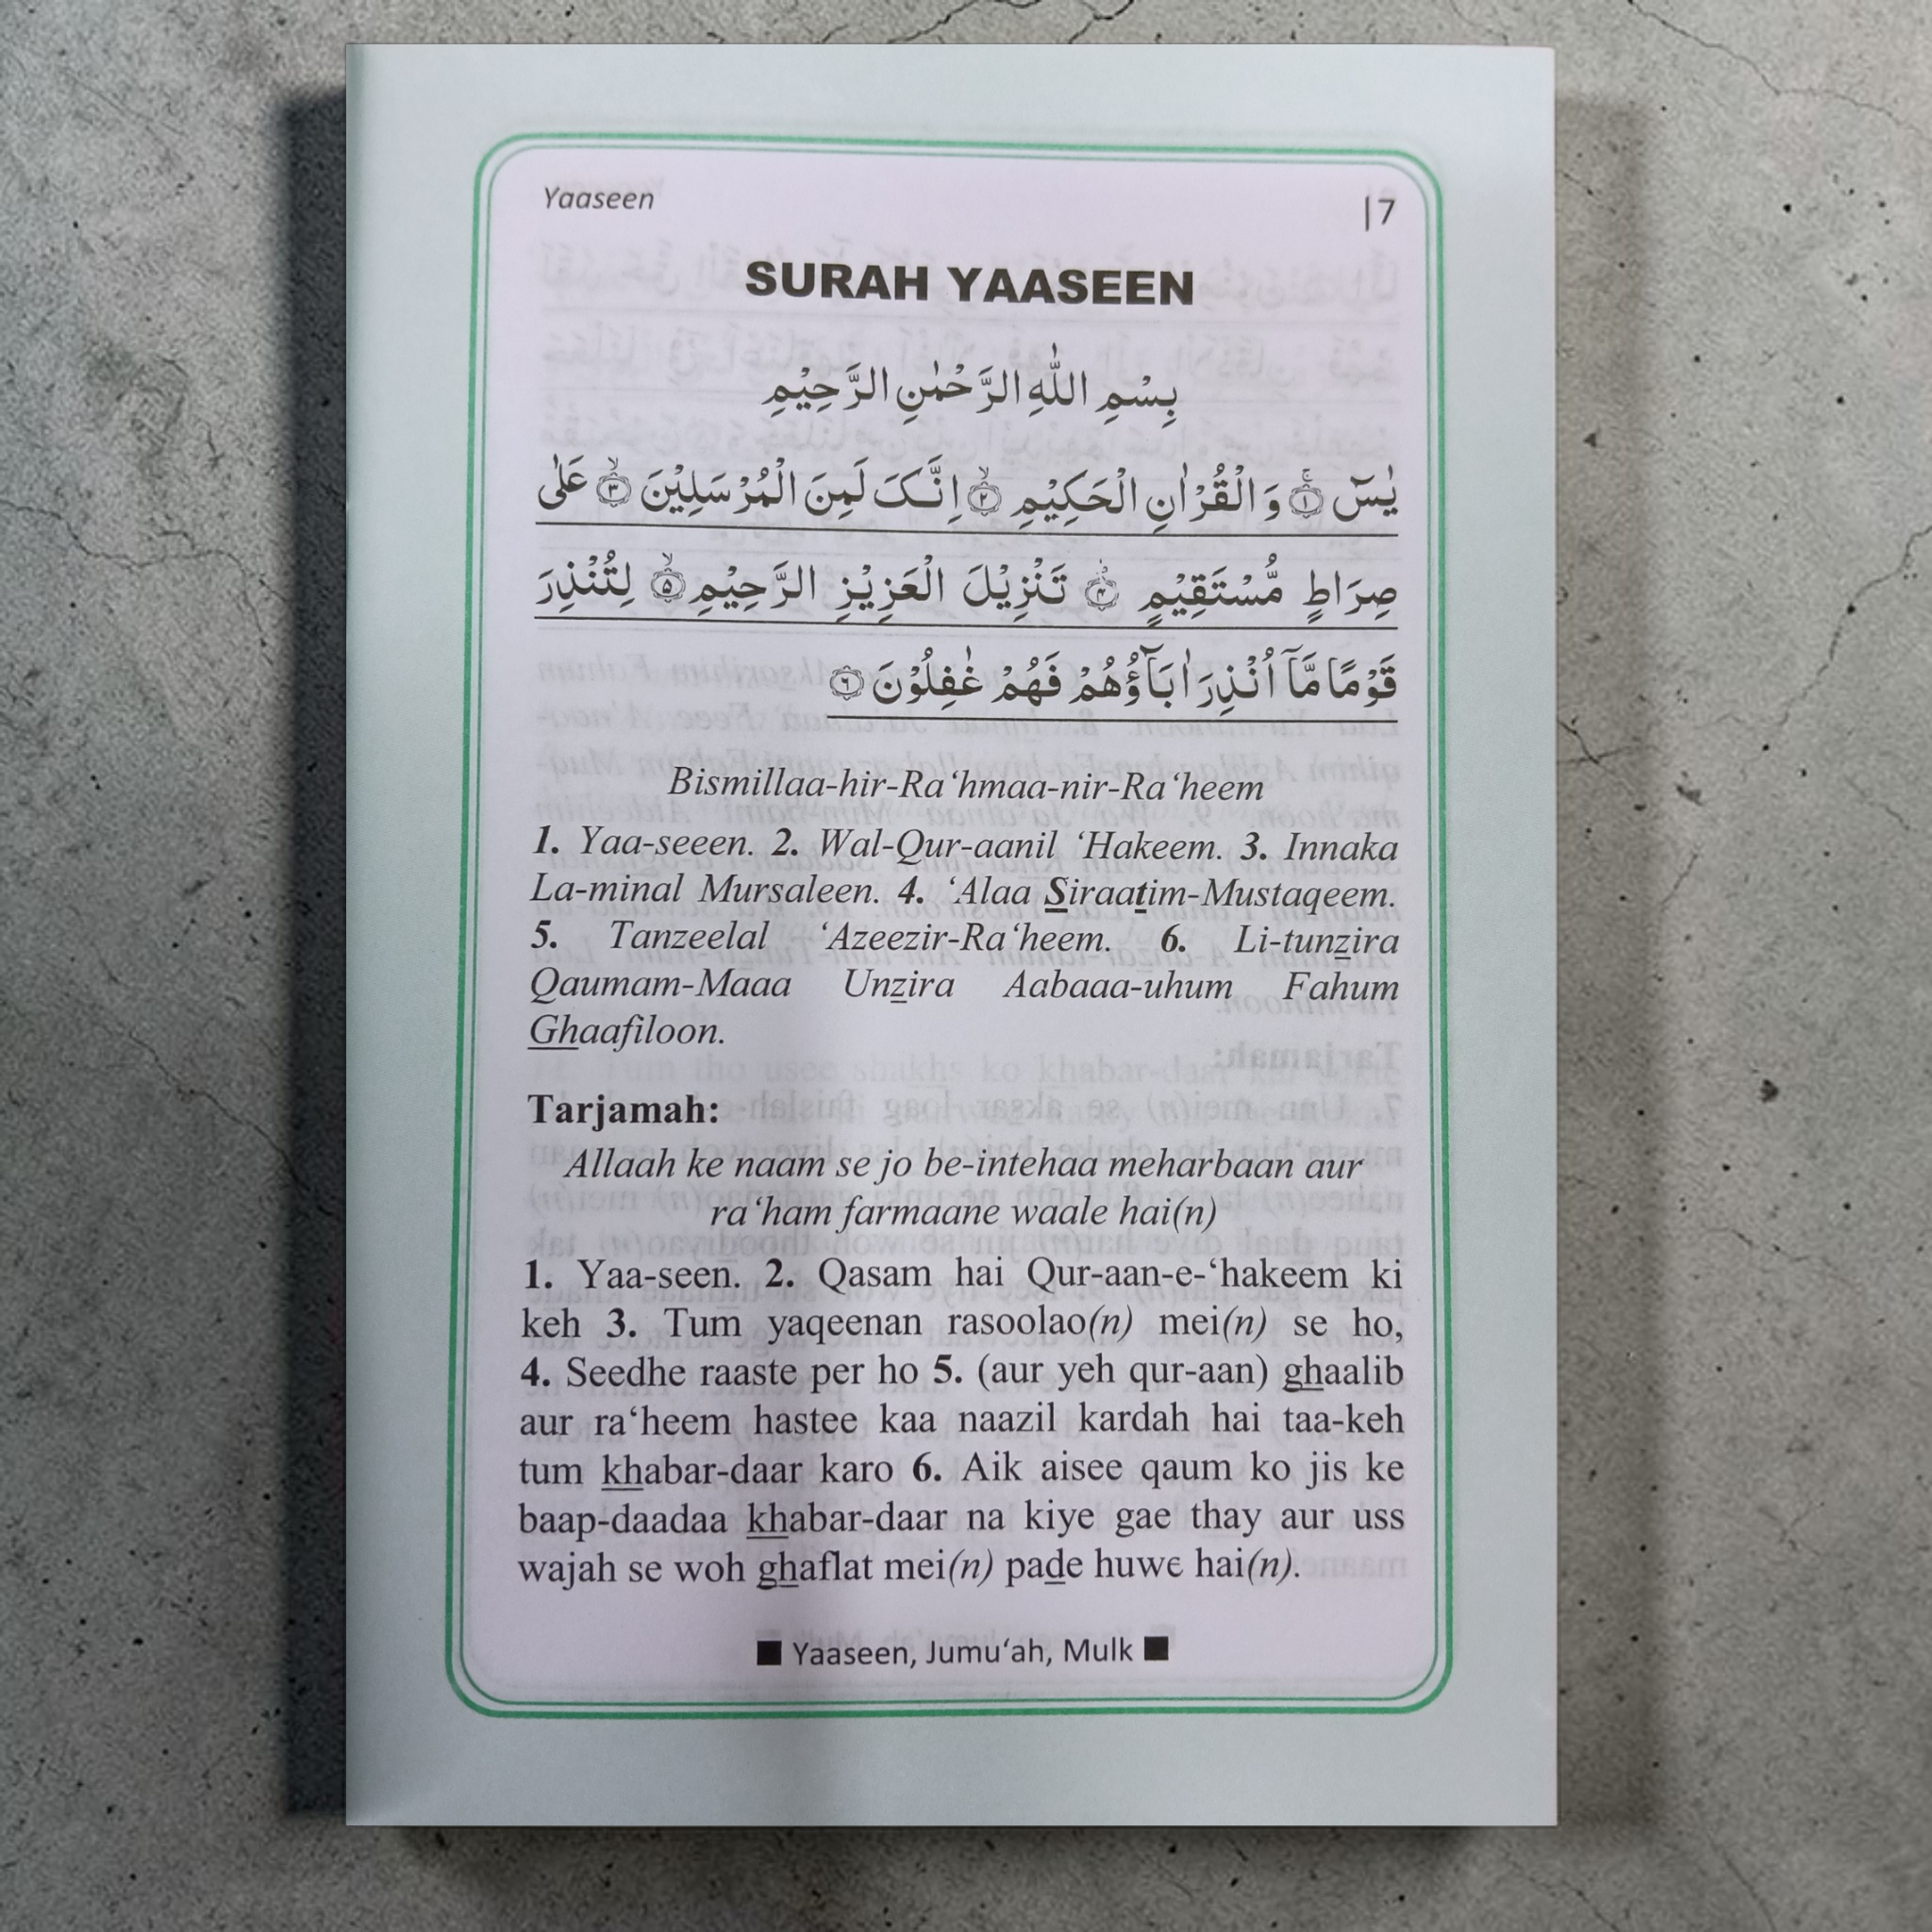 Yaaseen |7
SURAH YAASEEN
بِسْمِ اللّٰهِ الرَّحْمٰنِ الرَّحِيْمِ
يٰسٓ ۚ﴿۱﴾ وَ الْقُرْاٰنِ الْحَكِيْمِ ۙ﴿۲﴾ اِنَّکَ لَمِنَ الْمُرْسَلِيْنَ ۙ﴿۳﴾ عَلٰی
صِرَاطٍ مُّسْتَقِيْمٍ ؕ﴿۴﴾ تَنْزِيْلَ الْعَزِيْزِ الرَّحِيْمِ ۙ﴿۵﴾ لِتُنْذِرَ
قَوْمًا مَّاۤ اُنْذِرَ اٰبَآؤُهُمْ فَهُمْ غٰفِلُوْنَ ﴿۶﴾
Bismillaa-hir-Ra‘hmaa-nir-Ra‘heem
1. Yaa-seeen. 2. Wal-Qur-aanil ‘Hakeem. 3. Innaka
La-minal Mursaleen. 4. ‘Alaa Siraatim-Mustaqeem.
5. Tanzeelal ‘Azeezir-Ra‘heem. 6. Li-tunzira
Qaumam-Maaa Unzira Aabaaa-uhum Fahum
Ghaafiloon.
Tarjamah:
Allaah ke naam se jo be-intehaa meharbaan aur
ra‘ham farmaane waale hai(n)
1. Yaa-seen. 2. Qasam hai Qur-aan-e-‘hakeem ki
keh 3. Tum yaqeenan rasoolao(n) mei(n) se ho,
4. Seedhe raaste per ho 5. (aur yeh qur-aan) ghaalib
aur ra‘heem hastee kaa naazil kardah hai taa-keh
tum khabar-daar karo 6. Aik aisee qaum ko jis ke
baap-daadaa khabar-daar na kiye gae thay aur uss
wajah se woh ghaflat mei(n) pade huwe hai(n).
■ Yaaseen, Jumu‘ah, Mulk ■